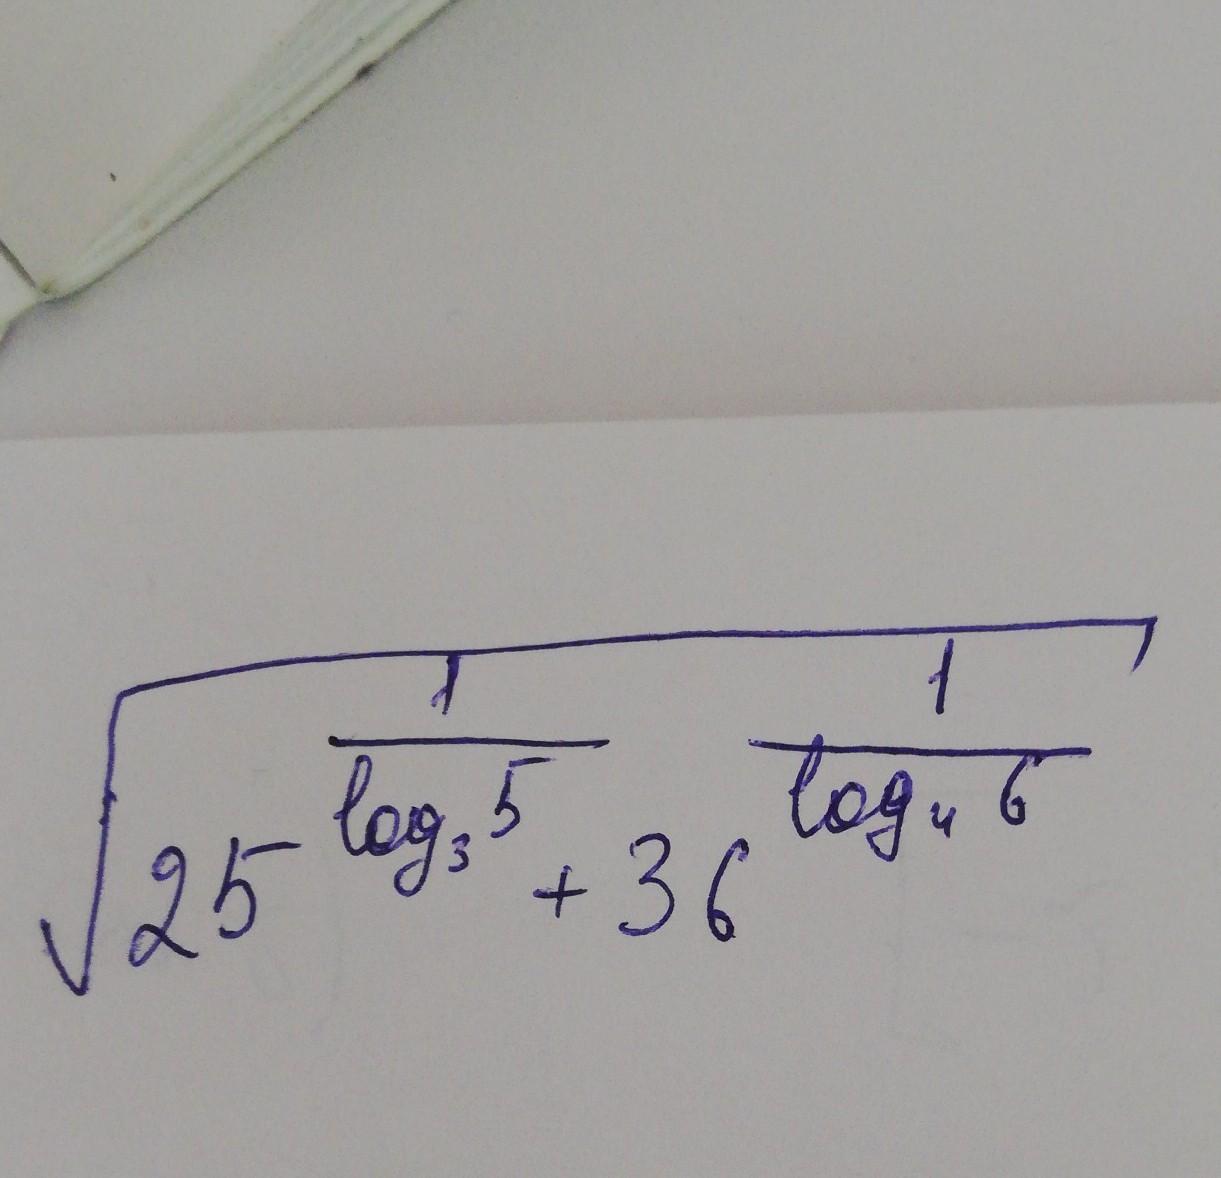 √(25^(1/log₃5) + 36^(1/log₄6))